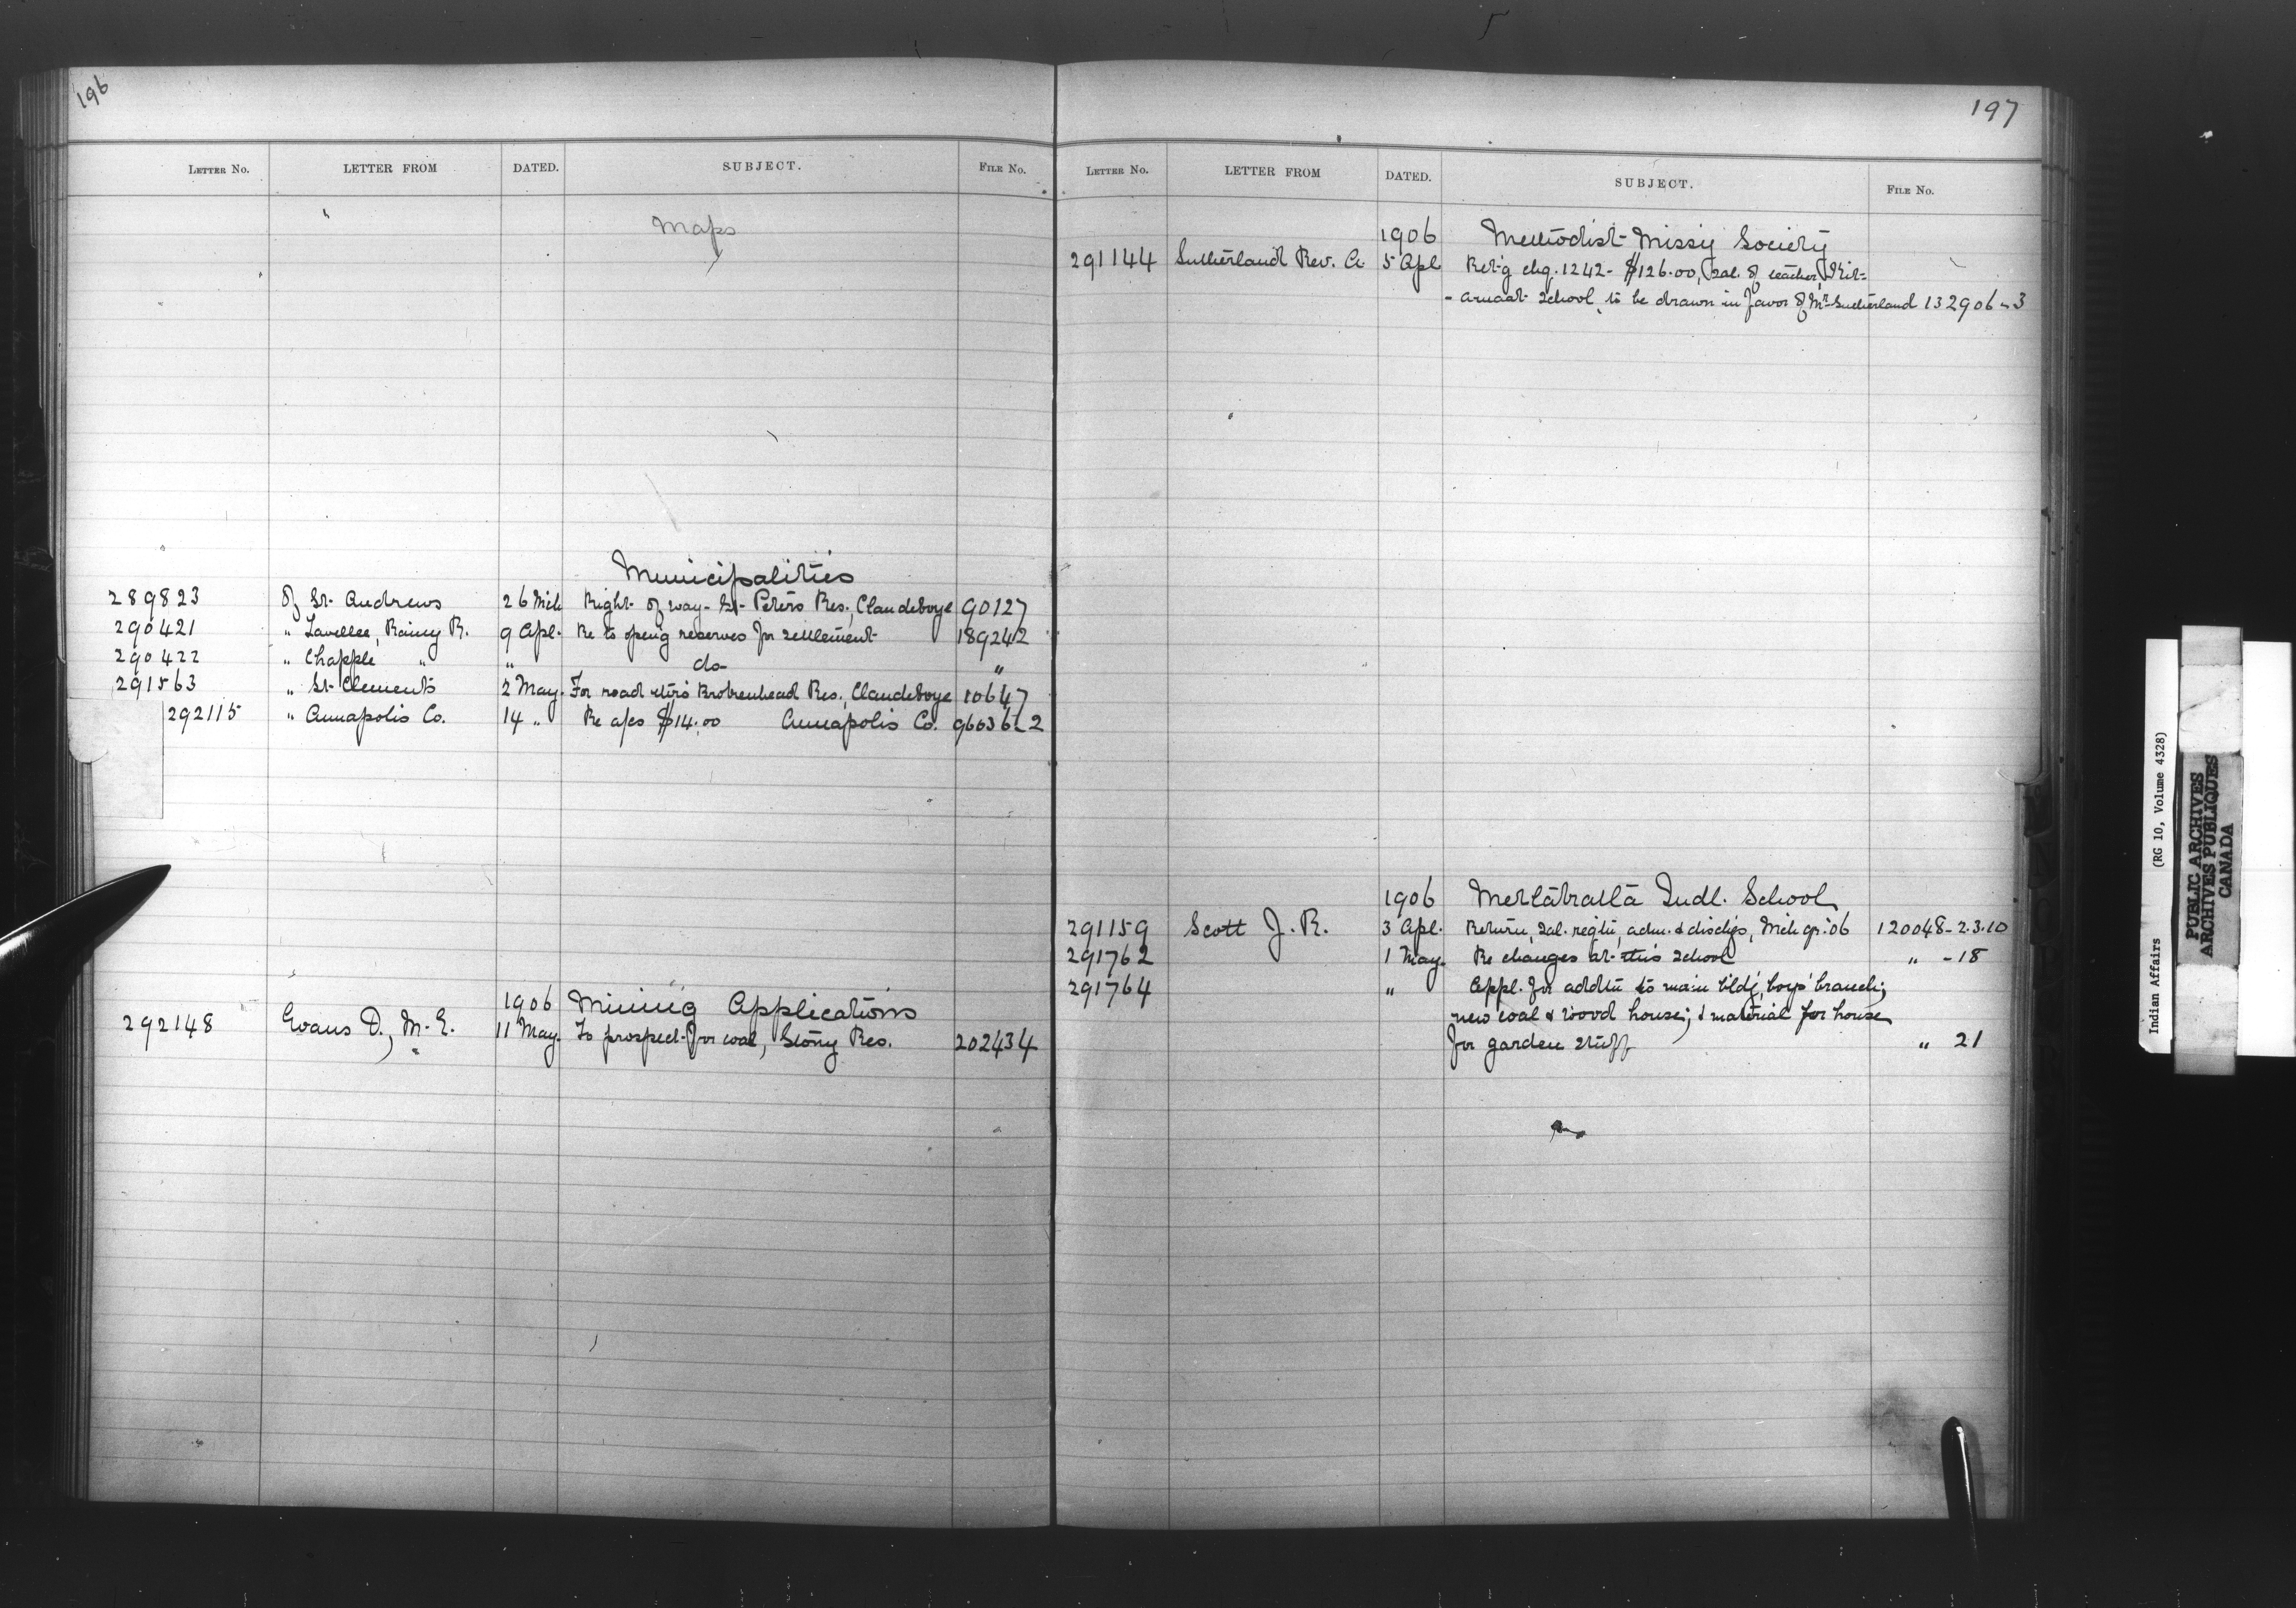 196
LETTER No. LETTER FROM DATED. SUBJECT. FILE No.
Maps
Municipalities
289823 of St. Andrews 26 Mch Right of way - St. Peters Res., Claudeboye 90127
290421 " Lavellee, Rainy R. 9 Apl. Re to open'g reserves for settlement 189242
290422 " Chapple " " do "
291563 " St. Clements 2 May. For road thro' Brokenhead Res., Claudeboye 10647
292115 " Annapolis Co. 14 " Re a/cs $14.00 Annapolis Co. 96036-2
1906 Mining Applications
292148 Evans D., M.E. 11 May. To prospect for coal, Stony Res. 202434
197
LETTER No. LETTER FROM DATED. SUBJECT. FILE No.
1906 Methodist Missy Society
291144 Sutherland Rev. A 5 Apl Ret'g chq. 1242 - $126.00, sal. of teacher, Kit-
- amaat School, to be drawn in favor of Mr Sutherland 132906-3
1906 Metlakatla Indl. School
291159 Scott J. R. 3 Apl. Return, sal. regtn, adm. & dischgs, Mch qr. '06 120048-2.3.10
291762 1 May. Re changes at this School " -18
291764 " Appl. for addtn to main bldg, boys' branch;
new coal & wood house; & material for house
for garden stuff " 21
Indian Affairs (RG 10, Volume 4328)
PUBLIC ARCHIVES
ARCHIVES PUBLIQUES
CANADA